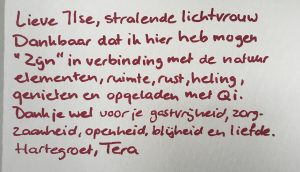 Lieve Ilse, stralende lichtvrouw
Dankbaar dat ik hier heb mogen
"Zijn" in verbinding met de natuur
elementen, ruimte, rust, heling,
genieten en opgeladen met Qi.
Dankje wel voor je gastvrijheid, zorg-
zaamheid, openheid, blijheid en liefde.
Hartegroet, Tera